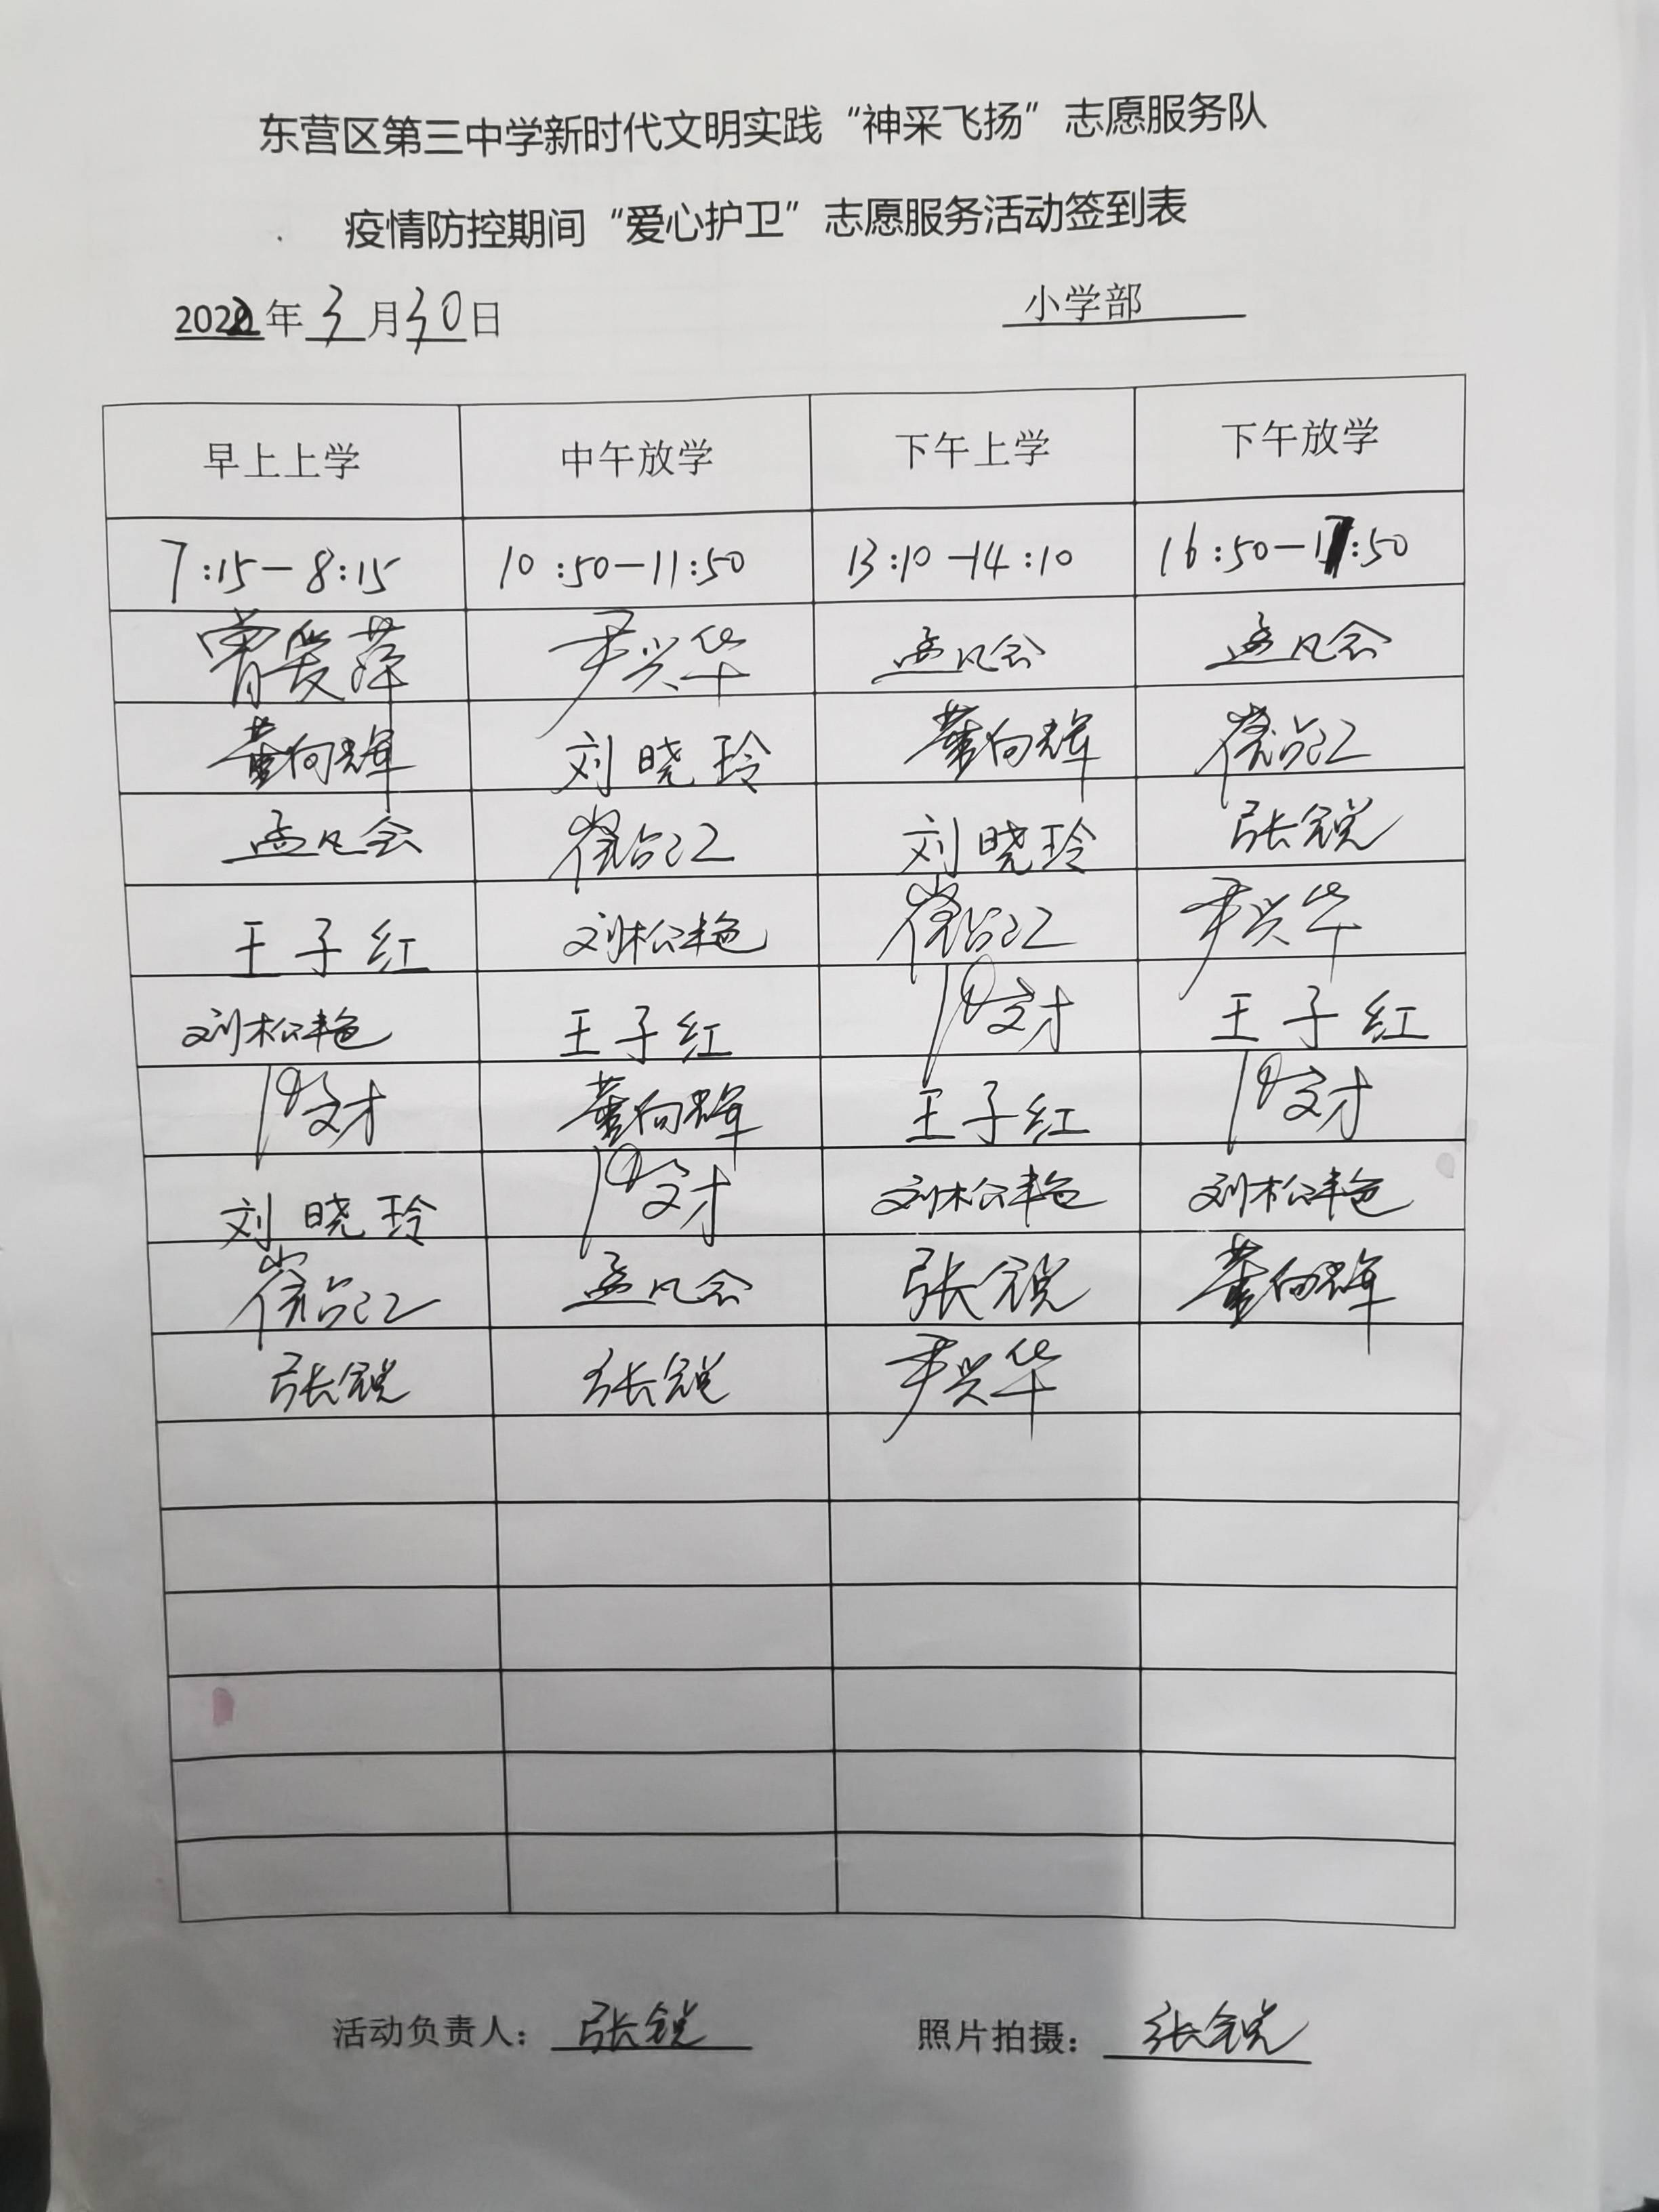 东营区第三中学新时代文明实践“神采飞扬”志愿服务队
疫情防控期间“爱心护卫”志愿服务活动签到表
2022年3月30日 小学部
早上上学 中午放学 下午上学 下午放学
7:15-8:15 10:50-11:50 13:10-14:10 16:50-17:50
曹爱萍 尹兴华 孟凡会 孟凡会
董向辉 刘晓玲 董向辉
孟凡会 刘晓玲 张锐
王子红 刘松艳 尹兴华
刘松艳 王子红 王子红
董向辉 王子红
刘晓玲 刘松艳 刘松艳
孟凡会 张锐 董向辉
张锐 张锐 尹兴华
活动负责人：张锐 照片拍摄：张锐